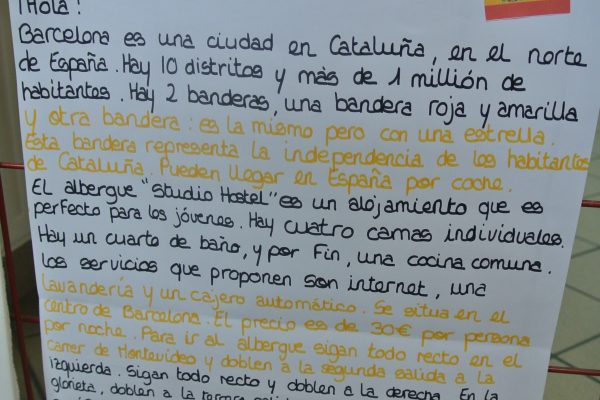 ¡Hola!
Barcelona es una ciudad en Cataluña, en el norte
de España. Hay 10 distritos y más de 1 millión de
habitantes. Hay 2 banderas, una bandera roja y amarilla
y otra bandera: es la mismo pero con una estrella.
Esta bandera representa la independencia de los habitantes
de Cataluña. Pueden llegar en España por coche.
El albergue "Studio Hostel" es un alojamiento que es
perfecto para los jóvenes. Hay cuatro camas individuales.
Hay un cuarto de baño, y por fin, una cocina comuna.
Los servicios que proponen son internet, una
lavandería y un cajero automático. Se situa en el
centro de Barcelona. El precio es de 30€ por persona
por noche. Para ir al albergue sigan todo recto en el
carrer de Montevideo y doblen a la segunda salida a la
izquierda. Sigan todo recto y doblen a la derecha. En la
glorieta, doblen a la